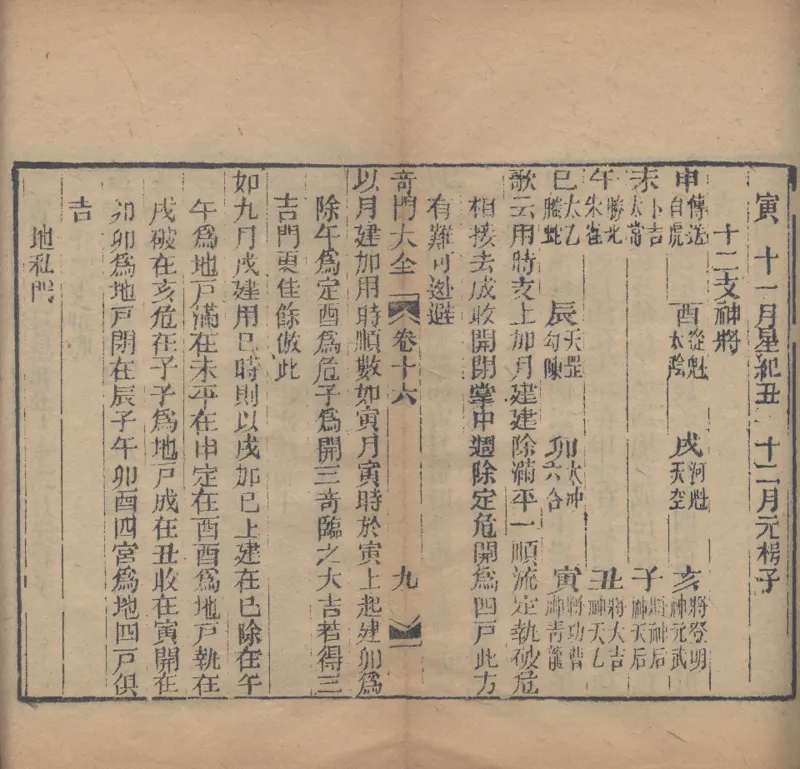 寅　十一月星紀丑　十二月元枵子
十二支神將
申傳送白虎　酉從魁太陰　戌河魁天空　亥將登明神元武
未小吉太常　子將神后神天后
午勝光朱雀　丑將大吉神天乙
巳太乙螣蛇　辰天罡勾陳　卯太冲六合　寅將功曹神青龍
歌云用時支上加月建建除滿平一順流定執破危
相接去成收開閉掌中週除定危開為四戶此方
有難可逊避
奇門大全　卷十六　九
以月建加用時順數如寅月寅時於寅上起建卯為
除午為定酉為危子為開三奇臨之大吉若得三
吉門更佳餘倣此
如九月戌建用巳時則以戌加巳上建在巳除在午
午為地戶滿在未平在申定在酉酉為地戶執在
戌破在亥危在子子為地戶成在丑收在寅開在
卯卯為地戶閉在辰子午卯酉四宮為地四戶俱
吉
地私門